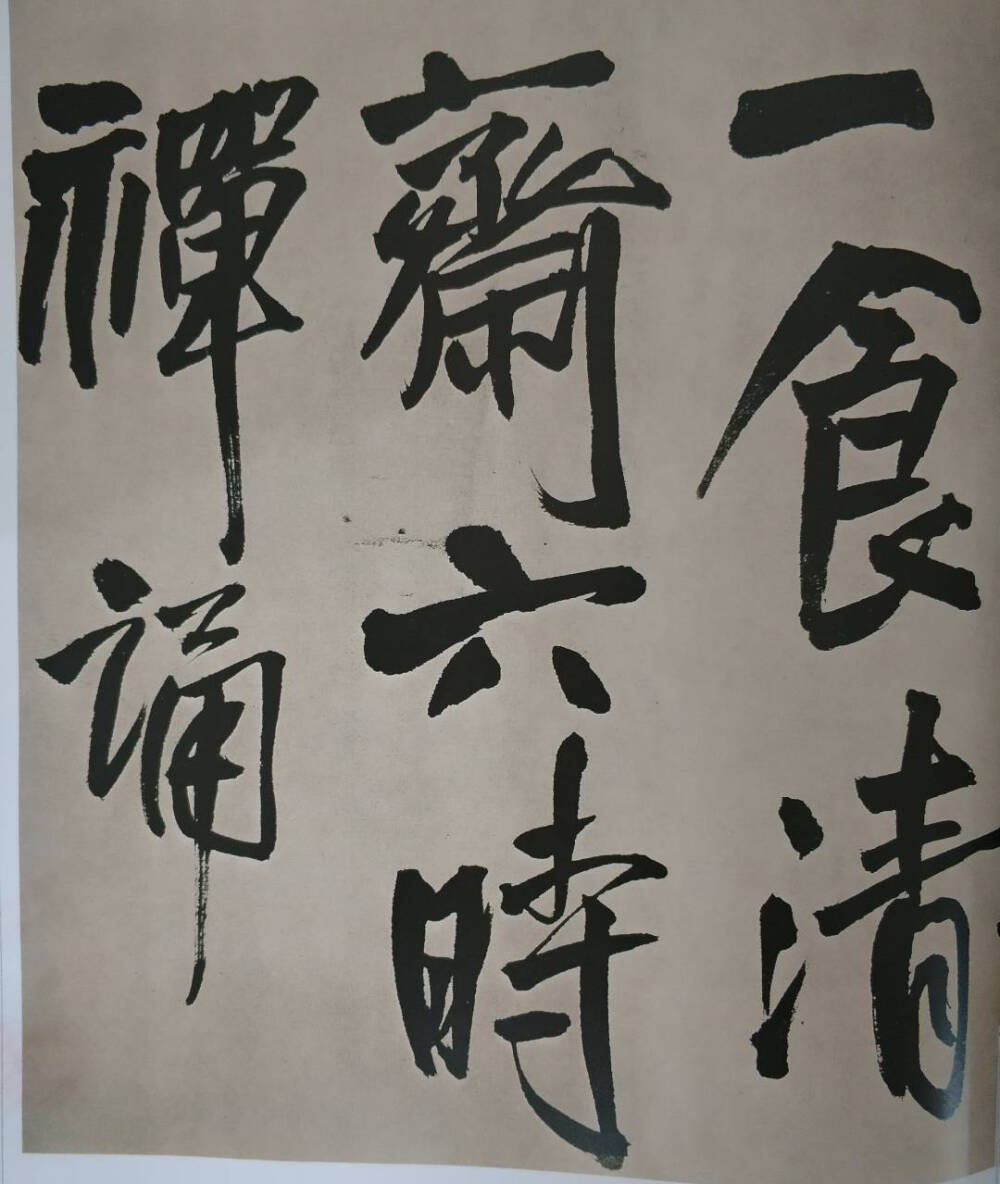 一食清
齋六時
禪誦